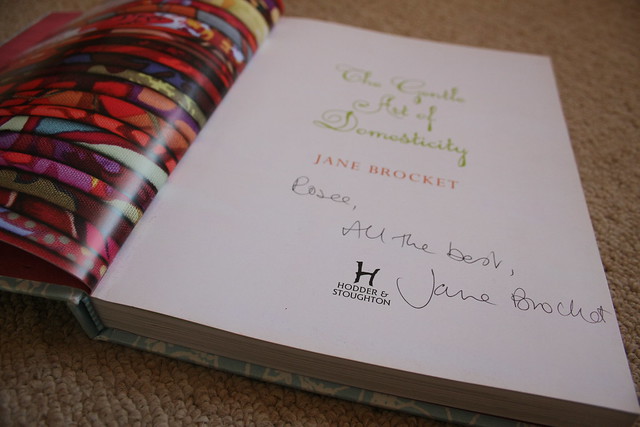 The Gentle
Art of
Domesticity
JANE BROCKET
Rosee,
All the best,
H
HODDER &
STOUGHTON
Jane Brocket